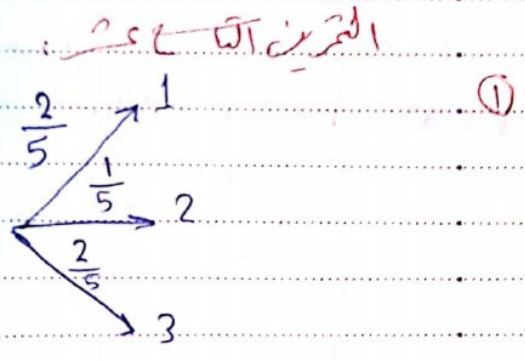 التمرين التاسع عشر :
①
2/5 1
1/5 2
2/5 3